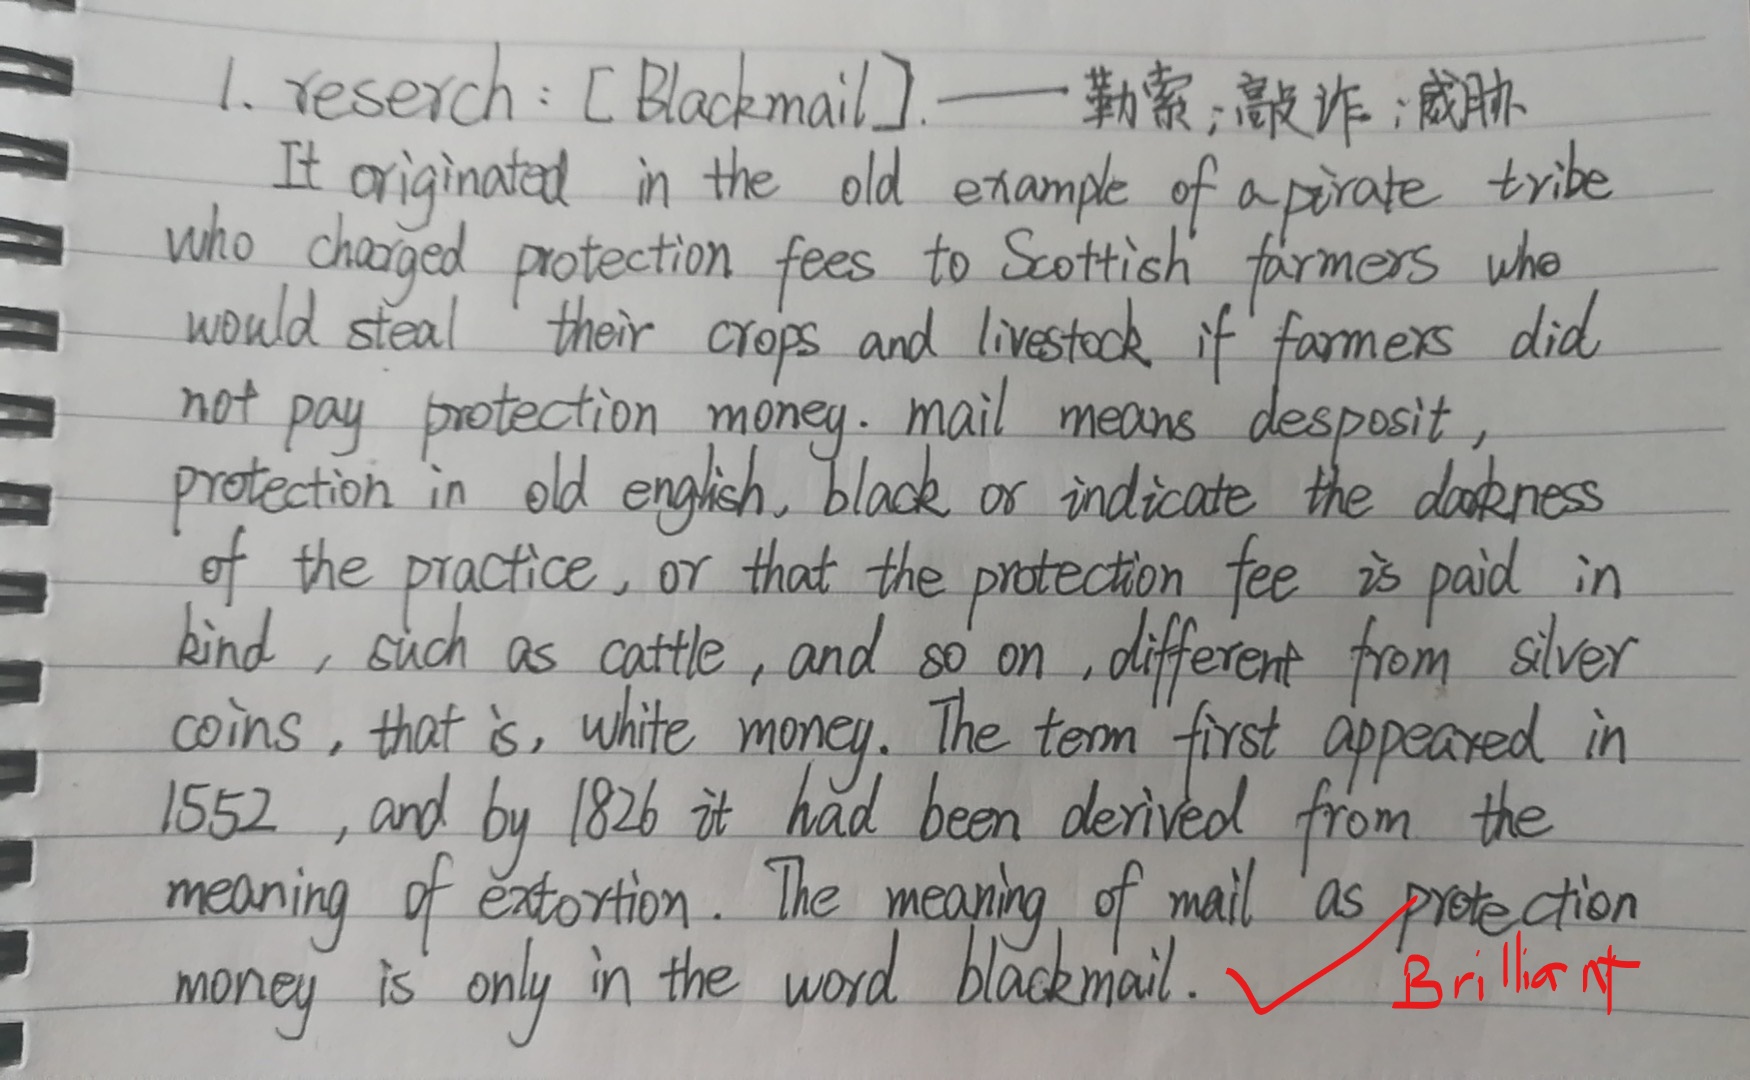 1. reserch : [Blackmail]. —— 勒索；敲诈；威胁
It originated in the old example of a pirate tribe
who charged protection fees to Scottish farmers who
would steal their crops and livestock if farmers did
not pay protection money. mail means desposit,
protection in old english, black or indicate the darkness
of the practice, or that the protection fee is paid in
kind, such as cattle, and so on, different from silver
coins, that is, white money. The term first appeared in
1552, and by 1826 it had been derived from the
meaning of extortion. The meaning of mail as protection
money is only in the word blackmail.
Brilliant